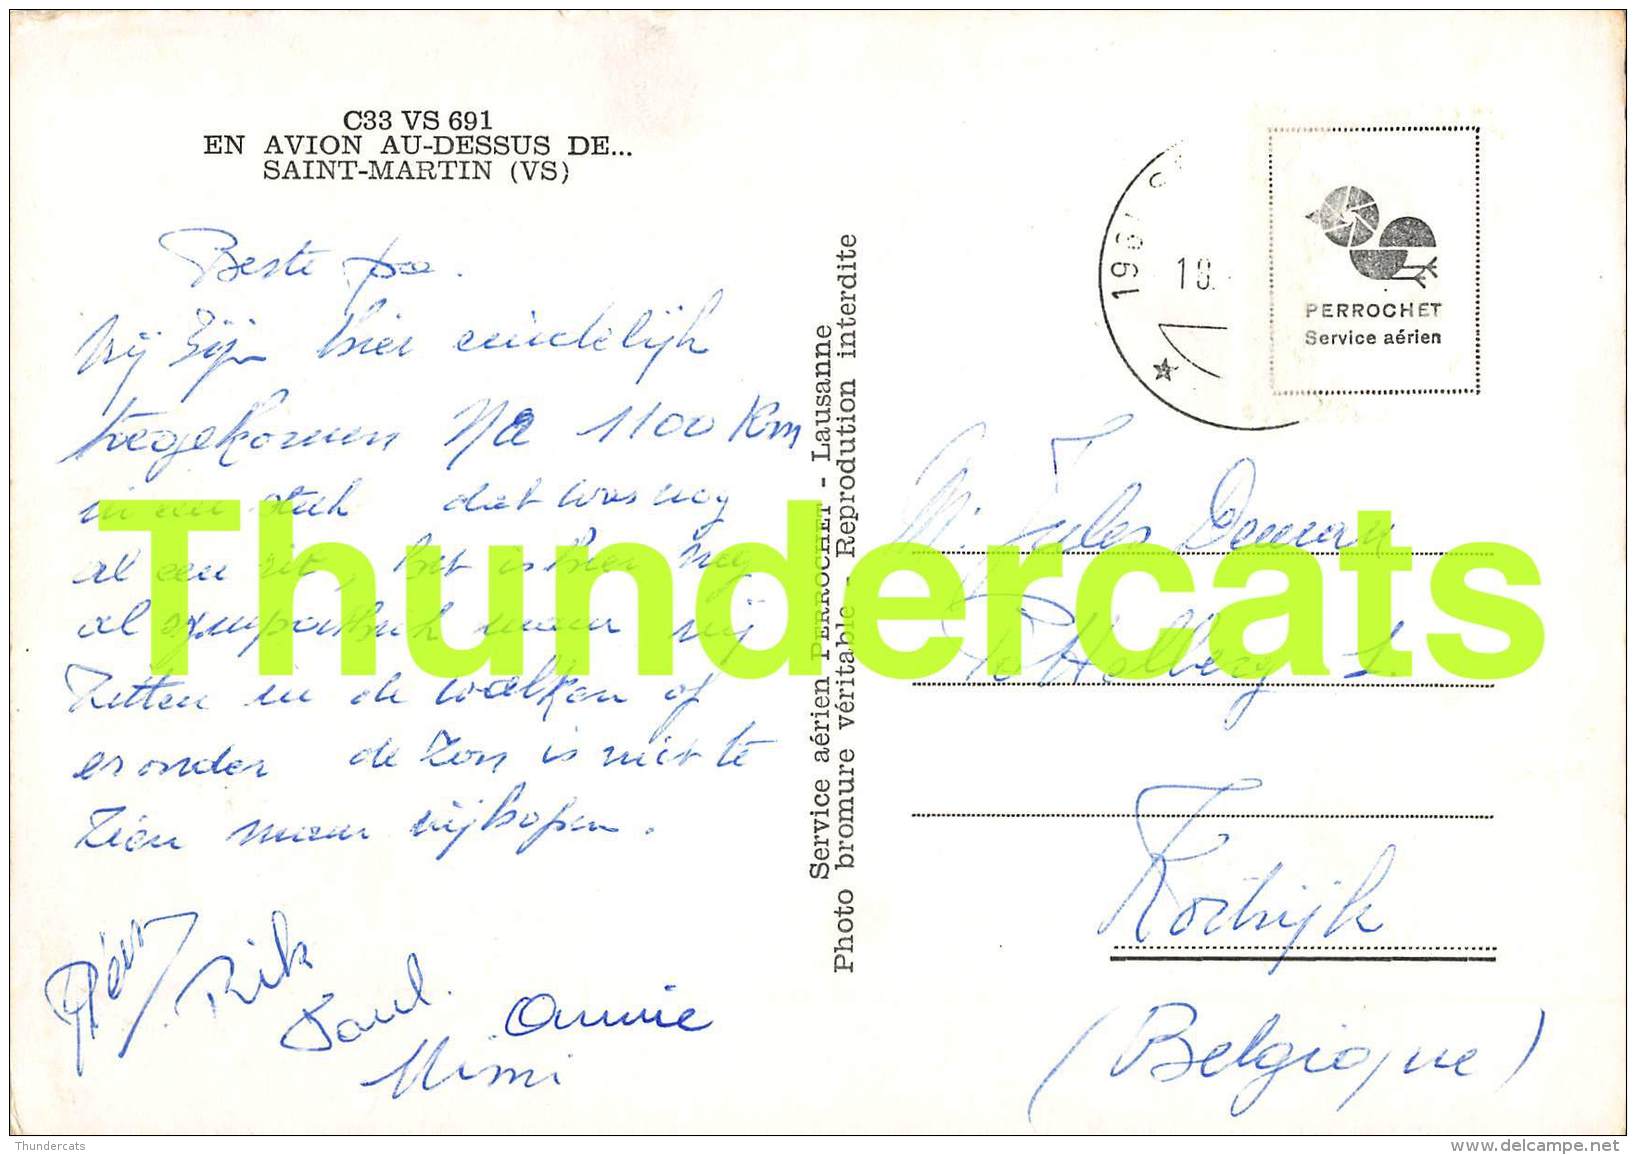 C33 VS 691
EN AVION AU-DESSUS DE...
SAINT-MARTIN (VS)
Beste pa.
Wij zijn hier eindelijk
toegekomen Na 1100 Km
in een stuk dat was nog
al een rit, het is hier nog
al sympathiek maar wij
zitten in de wolken of
eronder de zon is niet te
zien maar wij hopen.
Rik
Paul.
Annie
Mimi
Service aérien PERROCHET - Lausanne
Photo bromure véritable - Reprodution interdite
196
10.
PERROCHET
Service aérien
M. Jules
Kortrijk
(Belgique)
Thundercats
Thundercats
delcampe.net